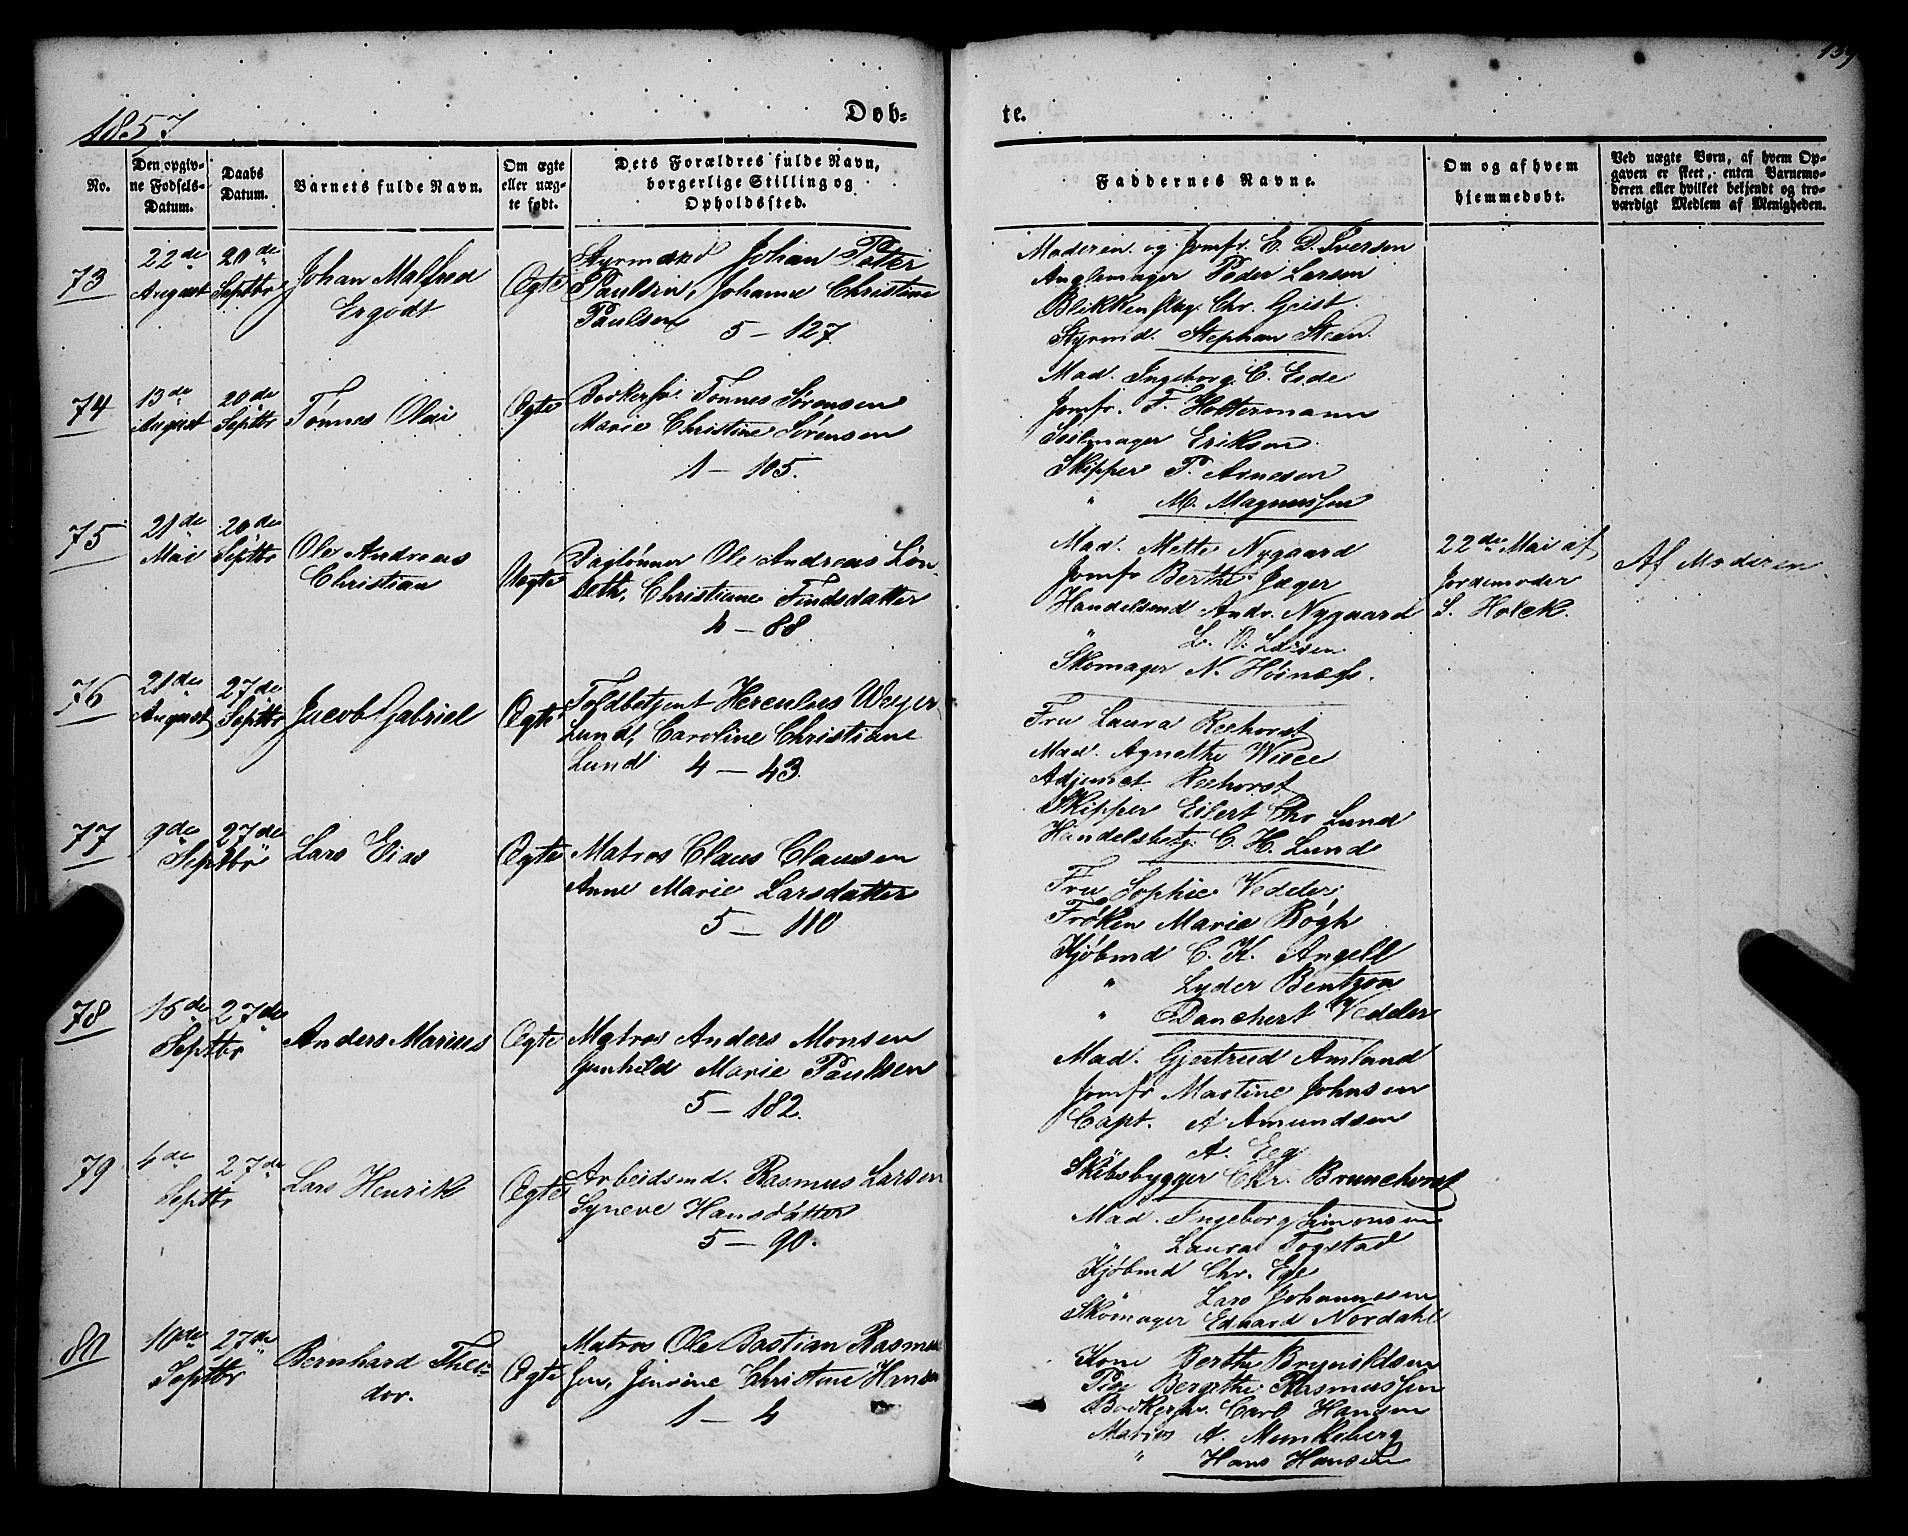 139
1857
Døb-
te.
No.
Den opgiv-
ne Fødsels-
Datum.
Daabs
Datum.
Barnets fulde Navn.
Om ægte
eller uæg-
te født.
Dets Forældres fulde Navn,
borgerlige Stilling og
Opholdssted.
Faddernes Navne.
Om og af hvem
hjemmedøbt.
Ved uægte Børn, af hvem Op-
gaven er skeet, enten Barnemo-
deren eller hvilket bekjendt og tro-
værdigt Medlem af Menigheden.
73
22de
August
20de
Septbr
Johan Malfred
Ergodt
Ægte
Styrmand Johan Peter
Paulsen, Johanne Christine
Paulsen
5 - 127
Moderen og Jomfr. E. D. Iversen
Peder Larsen
Blikkenslag. Chr. Geist
Styrmd. Stephan Steen.
74
13de
August
20de
Septbr
Tønnes Olai
Ægte
Bødkersv. Tønnes Sørensen
Marie Christine Sørensen
1 - 105.
Mad. Ingeborg C. Eide
Jomfr. F. Holtermann
Seilmager Eriksen
Skipper P. Arnesen
" M. Magnussen
75
21de
Mai
20de
Septbr
Ole Andreas
Christian
Uægte
Daglønner Ole Andreas Løn-
Christiane Findsdatter
4 - 88
Mad. Mette Nygaard
Jomfr Berthe Jæger
Handelsmd Andr. Nygaard
"
Skomager N. Høinæs.
22de Mai af
Jordemoder
S. Holck.
Af Moderen
76
21de
August
27de
Septbr
Jacob Gabriel
Ægte
Toldbetjent Herculus Weyer
Lund, Caroline Christiane
Lund 4 - 43
Fru Laura Reehorst
Mad. Agnethe Wiese
Adjunct Reehorst
Skipper Eilert Chr Lund
Handelsbetj. C. H. Lund
77
9de
Septbr
27de
Lars Eias
Ægte
Matros Claus Clausen
Anne Marie Larsdatter
5 - 110
Fru Sophie Vedeler
Frøken Marie Bøgh
Kjøbmd C. K. Angell
" Lyder Bentzon
" Danchert Vedeler
78
15de
Septbr
27de
Anders Marius
Ægte
Matros Anders Monsen
Gunhild Marie Paulsen
5 - 182.
Mad. Gjertrud Amland
Jomfr Martine Johnsen
Capt. A Amundsen
A. Eeg
Skibsbygger Chr. Brunchorst
79
4de
Septbr
27de
Lars Henrik
Ægte
Arbeidsmd. Rasmus Larsen
Syneve Hansdatter
5 - 90.
Mad. Ingeborg Simonsen
" Laura Fogstad
Kjøbmd Chr. Ege
Lars Johannesen
Skomager Edvard Nordahl
80
10de
Septbr
27de
Bernhard Theo-
dor.
Ægte
Matros Ole Bastian Rasmus-
sen, Jensine Christine Hansen
1 - 4
Kone Berthe Brynildsen
Pige Bergithe Rasmussen
Bødkersv. Carl Hansen
Matros A. Munkeberg
" Hans Hansen